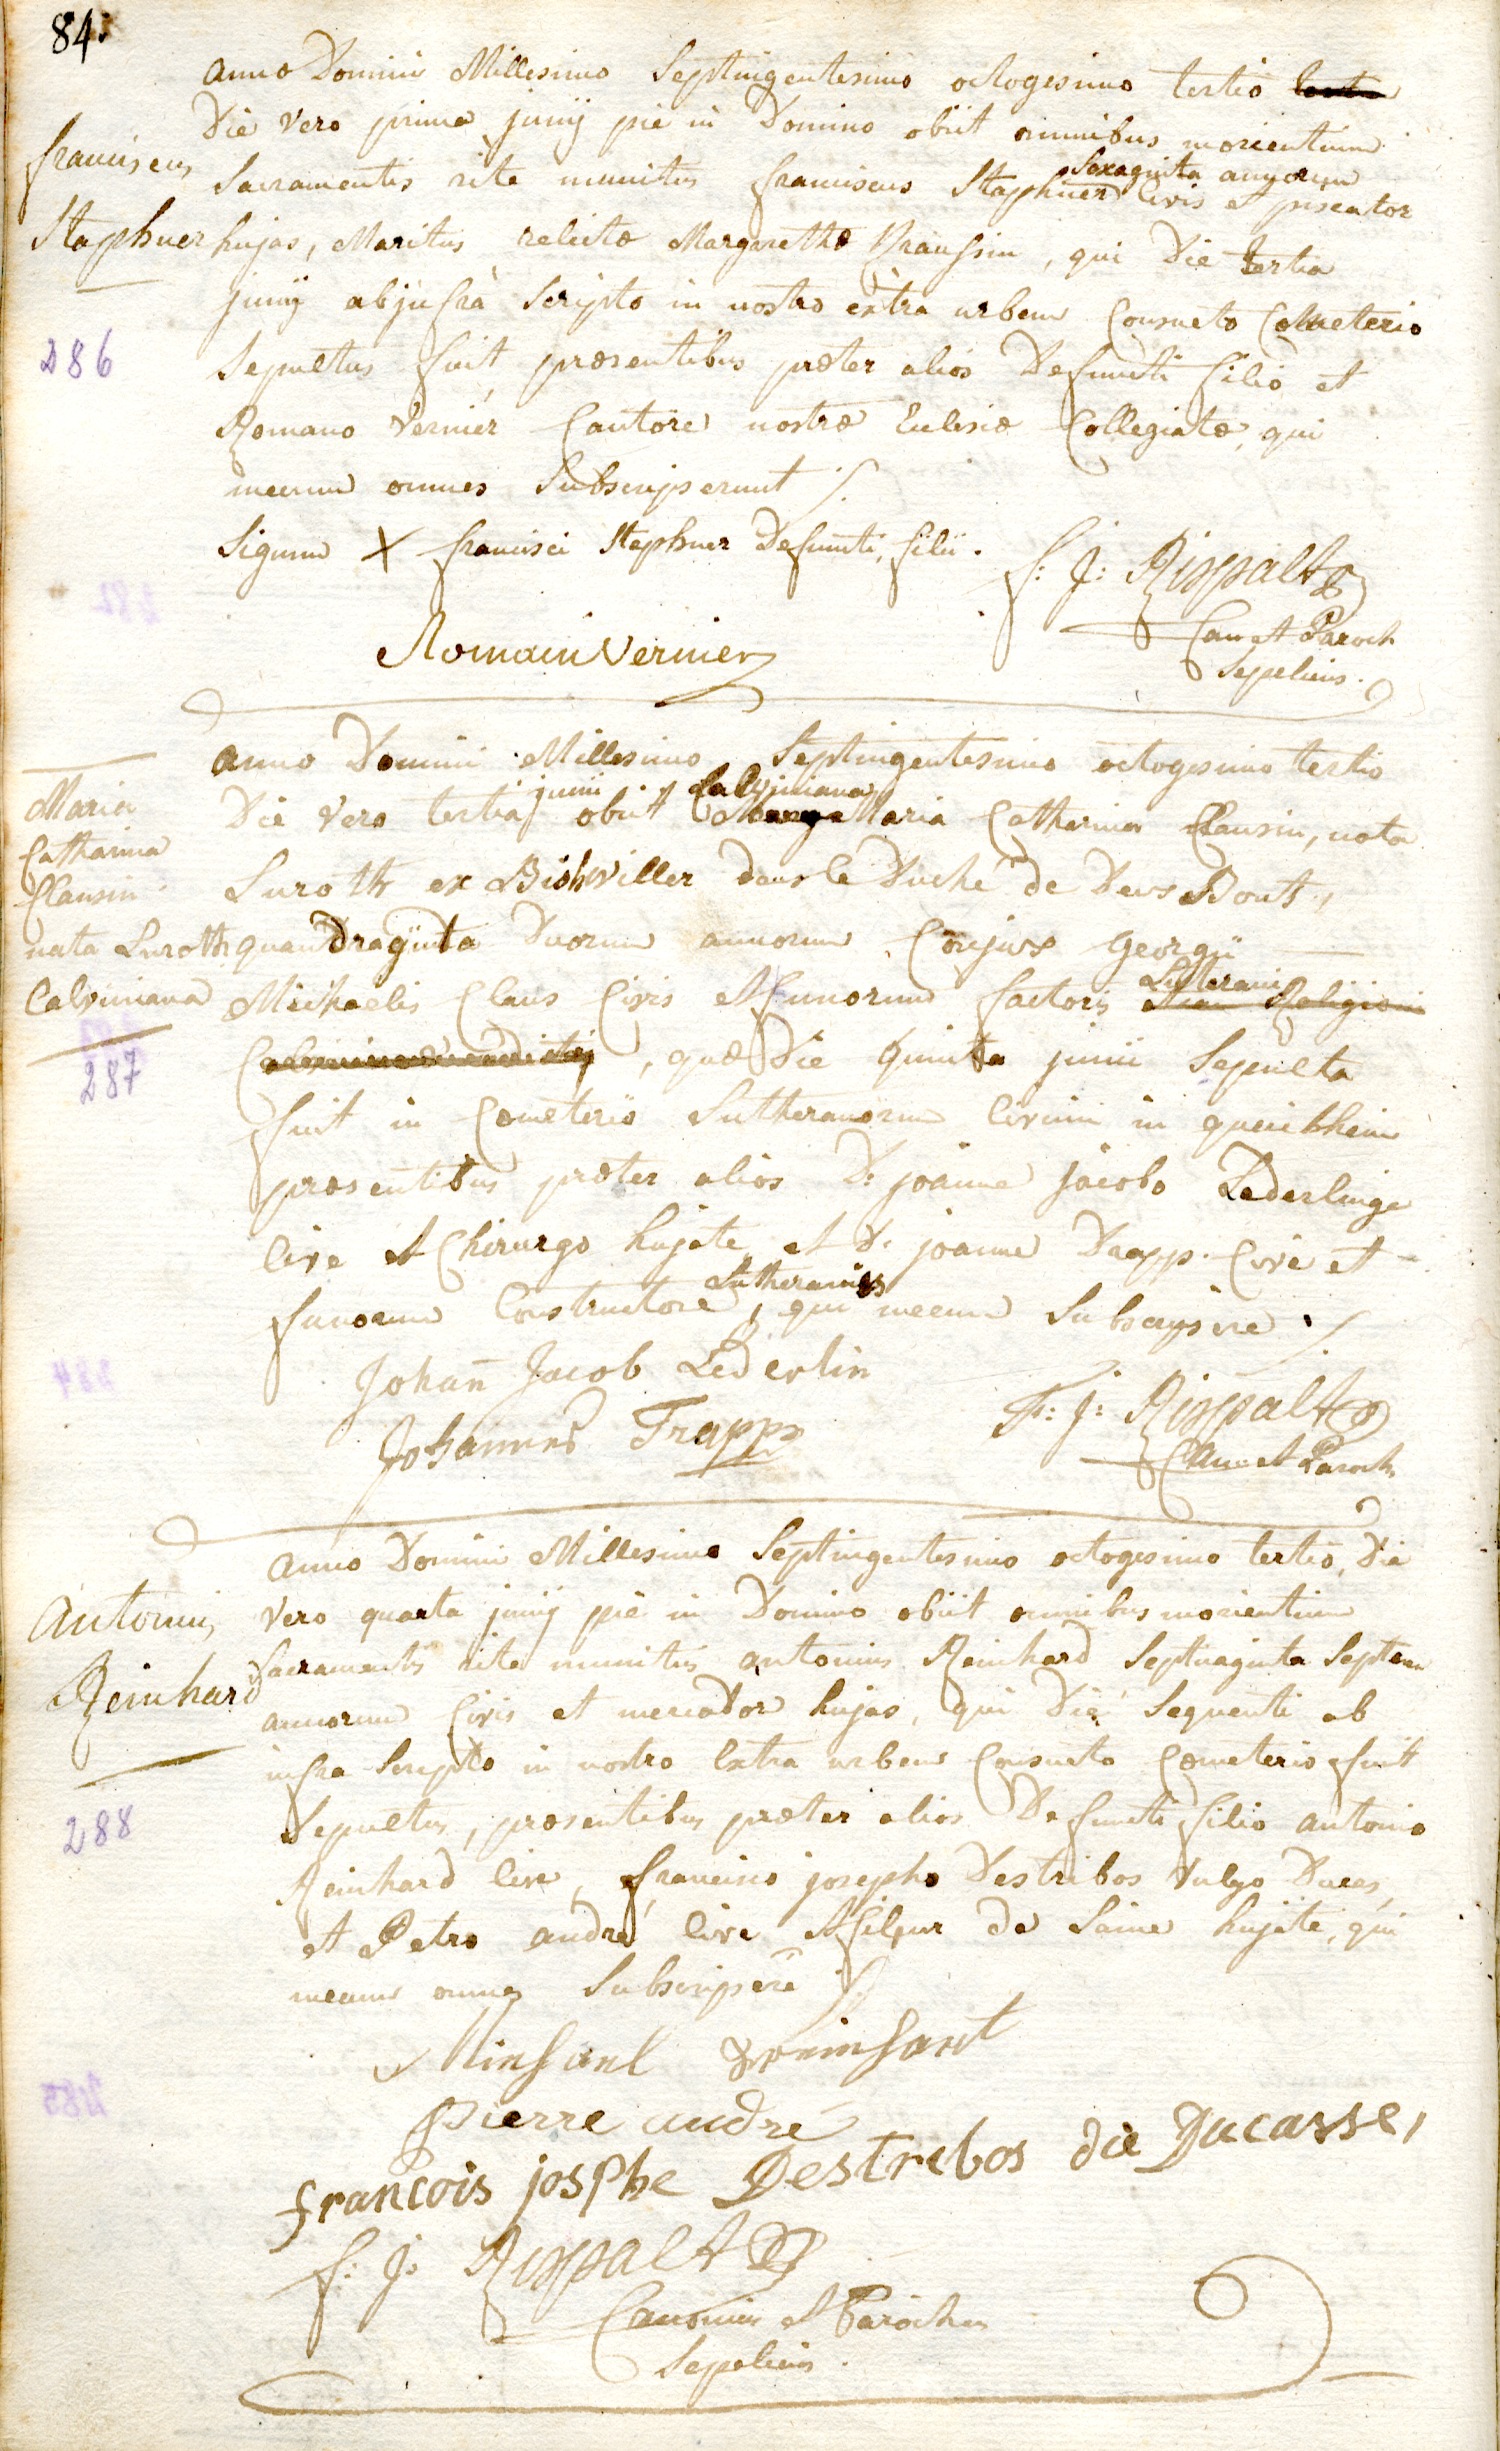 84.
anno Domini Millesimo Septingentesimo octogesimo tertio
Die vero prima junij piè in Domino obiit omnibus morientium
franciscus
Sacramentis ritè munitus franciscus Staphner Sexaginta annorum Civis et piscator
Staphner
hujas, Maritus relictæ Margarethæ, qui Die tertia
junij ab infrà Scripto in nostro extra urbem Consueto Cœmeterio
286
Sepultus fuit, præsentibus præter alios Defuncti filio et
Romano Vernier Cantore nostræ Eclesiæ Collegiatæ, qui
mecum omnes Subscripserunt ./.
Signum X francisci Staphner Defuncti filii.
f: j: Rippalt
Can et Paroch
Sepeliens.
Romain Vernier
anno Domini Millesimo Septingentesimo octogesimo tertio
Maria
Catharina
Clausin
nata Luroth
Calviniana
287
Die vero tertia junii obiit Calviniana Maria Catharina Clausin, nata
Luroth ex Bishwiller dans le Duché de Deux Ponts,
quandraginta Duorum annorum, Conjux Georgii
Michaelis Claus Civis et funorum factoris Lutherani
, quæ Die quinta junii Sepulta
fuit in Cœmeterio Lutheranorum Civium in queichheim
præsentibus præter alios D: joanne jacobo Lederlinge
Cive et Chirurgo hujate, et D. joanne Drapp. Cive et
funorum Constructore, Lutheranis, qui mecum Subscripsere ./.
Johan̄ Jacob Lederlin
Johannes Trapp
F: j: Rippalt
Can et Paroch
anno Domini Millesimo Septingentesimo octogesimo tertio, Die
antonius
Reinhard
288
vero quarta junij piè in Domino obiit omnibus morientium
Sacramentis ritè munitus antonius Reinhard Septuaginta Septem
annorum Civis et mercator hujas, qui Die Sequenti ab
infra Scripto in nostro Extra urbem Consueto Cœmeterio fuit
Sepultus, præsentibus præter alios Defuncti filio antonio
Reinhard Cive, francisco josepho Destribos vulgo Ducas,
et Petro andré Cive et hujate, qui
mecum omnes Subscripsere ./.
Pierre andré
francois josphe Destrebos die Ducasse,
f: j: Rippalt
Canonicus et Parochus
Sepeliens.